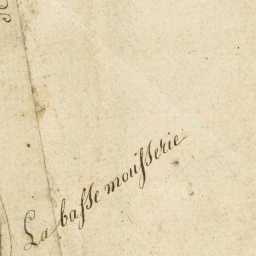 La basse mousserie